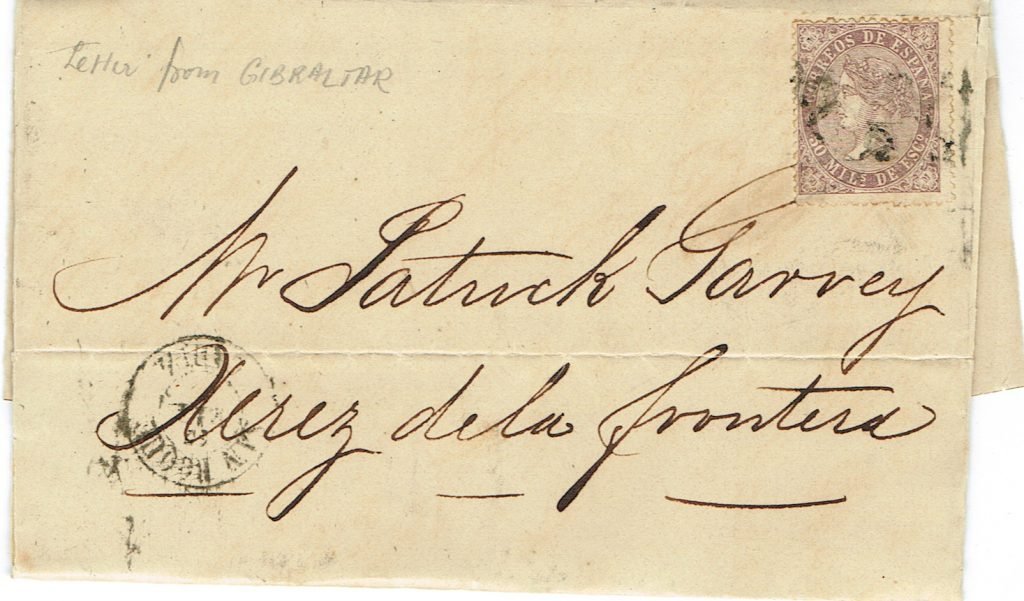 Letter from GIBRALTAR
CORREOS DE ESPAÑA
50 MILS DE ESCO
Mr Patrick Garvey
Xerez dela frontera
SAN ROQUE